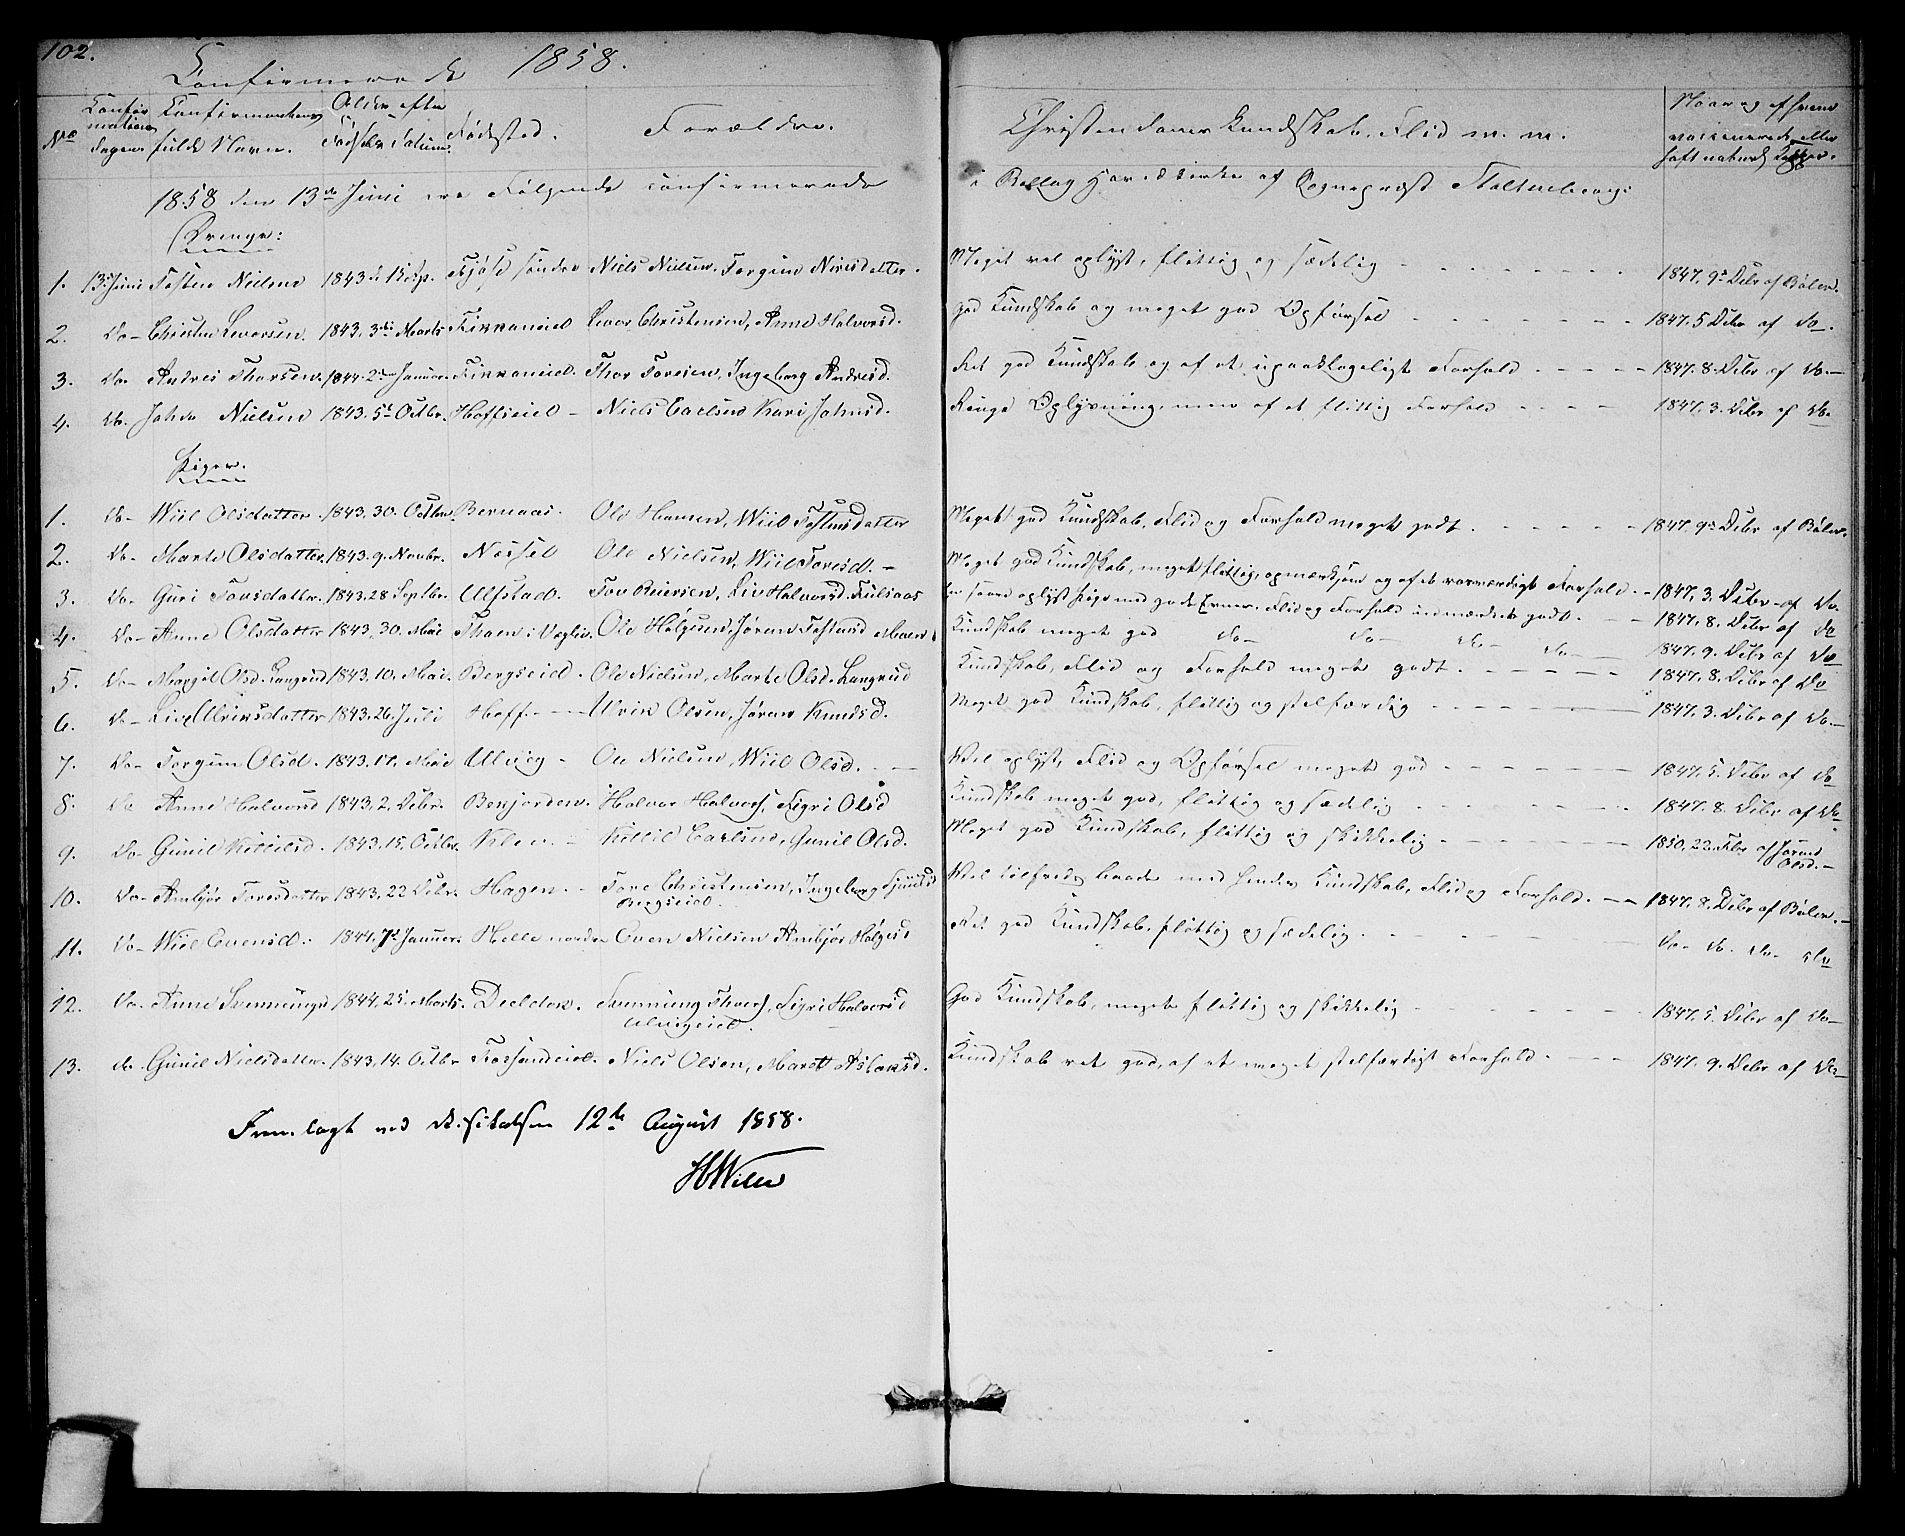 102.
Confirmerede 1858.
No
Confirmations Dagen
Confirmanternes fulde Navn.
Alder efter Fødsels Datum.
Fødested.
Forældre.
Christendoms Kundskab, Flid m. m.
Naar og af hvem vaccineret eller haft naturl. Kopper.
1858 den 13de Juni ere Følgende confirmerede i Rollag Hovedkirke af Sognepræst Stoltenberg:
Drenge:
1. 13de Juni Tosten Nielsen 1843 Fjøse søndre Niels Nielsen, Torgun Nirisdatter. Meget vel oplyst, flittig og sædelig 1847, 9de Debr af Bølen.
2. Do- Christen Levorsen. 1843, 3de Marts Levor Christensen, Anne Halvorsd. god Kundskab og meget god Opførsel 1847. 5 Debr af Do.
3. Do- Andres Thorsen. 1844. 2den Januar. Thor Toresen, Ingeborg Andresd. Ret god Kundskab og af et upaaklageligt Forhold 1847. 8. Debr af Do.-
4. Do. Johan Nielsen 1843. 5te Octbr. Hoffseiel - Niels Carlsen Kari Johnsd. Ringe Oplysning, men af et flittig Forhold 1847. 3. Debr af Do.
Piger.
1. Do- Wiil Olsdatter. 1843, 30. Octbr. Bernaas. Ole Hansen, Wiil Tostensdatter Meget god Kundskab, Flid og Forhold meget godt. 1847. 9de Debr af Bølen.
2. Do- Marte Olsdatter. 1843. 9. Novbr. Ole Nielsen, Wiil Toresd. - Meget god Kundskab, meget flittig, opmærksom og af et roeværdigt Forhold. 1847, 3. Debr af Do.
3. Do- Guri Tovsdatter. 1843, 28 Septbr. Ulfstad. Tov Reiersen, Liv Halvorsd. Juliaas En saare oplyst Pige med gode Evner. Flid og Forhold udmærket godt. 1847. 8. Debr af Do
4. Do- Anne Olsdatter 1843, 30. Mai Thoen i Vegli. Ole Helgesen, Jøran Tostensd Moen. Kundskab meget god Do- Do- Do- Do- 1847. 9. Debr af Do
5. Do- Margit Olsd. Langrud 1843, 10. Mai. Bergseiel. Ole Nielsen, Marte Olsd. Langrud Kundskab, Flid og Forhold meget godt. 1847. 8. Debr af Do
6. Do- Live Ulriksdatter 1843. 26. Juli Hoff. Ulrik Olsen, Jøran Knudsd. Meget god Kundskab, flittig og stilfærdig 1847. 3. Debr af Do.-
7. Do- Torgun Olsd. 1843. 17. Mai Ulvig - Ole Nielsen, Wiil Olsd. Vel oplyst, Flid og Opførsel meget god 1847. 5. Debr af Do
8. Do Anne Halvorsd 1843. 2. Debr. Benjorden. Halvor Halvors., Sigri Olsd Kundskab meget god, flittig og sædelig 1847. 8. Debr af Do
9. Do- Gunil Kittilsd. 1843. 15. Octbr. Kittil Carlsen, Gunil Olsd. Meget god Kundskab, flittig og skikkelig 1850. 22. Febr. af Jørund Olsd.-
10. Do- Ambjør Toresdatter 1843, 22 Debr. Hagen. - Tore Christensen, Ingeborg Bergseiel. Vel tilfreds baade med hendes Kundskab, Flid og Forhold. 1847. 8. Debr af Bølen.
11. Do- Wiil Evensd. 1844. 7de Januar. Helle nordre Even Nielsen Ambjør Helgesd Ret god Kundskab, flittig og sædelig. Do- Do. Do- Do
12. Do- Anne Svenningsd 1844. 25. Marts. Svenning Thors., Sigri Halvorsd Ulvigeiel. God Kundskab, meget flittig og skikkelig 1847. 5. Debr af Do-
13. Do. Gunil Nielsdatter. 1843, 14. Octbr Niels Olsen, Marit Aslaksd. Kundskab ret god, af et meget stilfærdigt Forhold. 1847. 9. Debr af Do-
Fremlagt ved Visitatsen 12te August 1858.